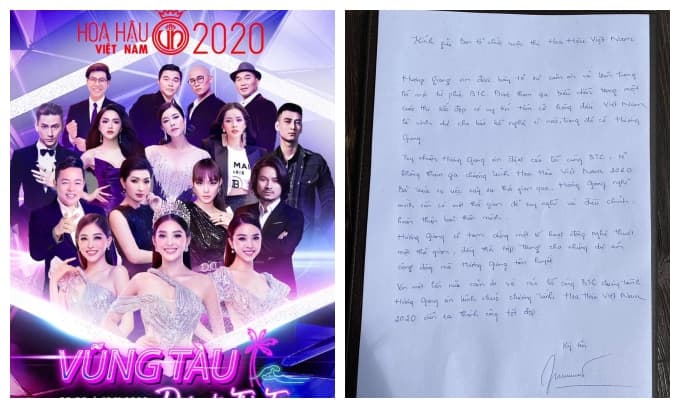 HOA HẬU
VIỆT NAM 2020
VŨNG TÀU
Kính gửi Ban tổ chức cuộc thi Hoa Hậu Việt Nam
Hương Giang xin được bày tỏ sự cảm ơn và trân trọng
từ phía BTC. Được tham gia biểu diễn trong một
cuộc thi sắc đẹp có uy tín, tầm cỡ hàng đầu Việt Nam
là vinh dự cho nghệ sĩ nào, trong đó có Hương
Giang.
Tuy nhiên, Hương Giang xin được cáo lỗi cùng BTC, vì
không tham gia chương trình Hoa Hậu Việt Nam 2020.
việc xảy ra thời gian qua, Hương Giang nghĩ
mình cần có một thời gian để suy nghĩ và điều chỉnh,
hoàn thiện bản thân mình.
Hương Giang sẽ tạm dừng một số hoạt động nghệ thuật
một thời gian, đồng thời tập trung cho những dự án
cộng đồng mà Hương Giang tâm huyết
Xin một lần nữa cảm ơn và cáo lỗi cùng BTC chương trình
Hương Giang xin kính chúc chương trình Hoa Hậu Việt Nam
2020 diễn ra thành công tốt đẹp
Ký tên